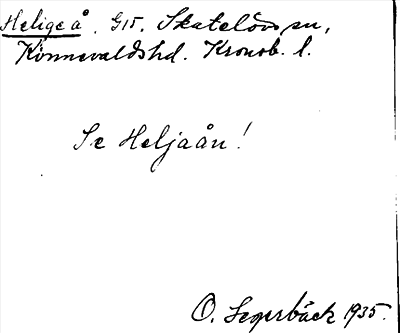 Helige å. G15. Skatelövs sn,
Kinnevaldshd. Kronob. l.
Se Heljaån!
O. Segerbäck 1935.